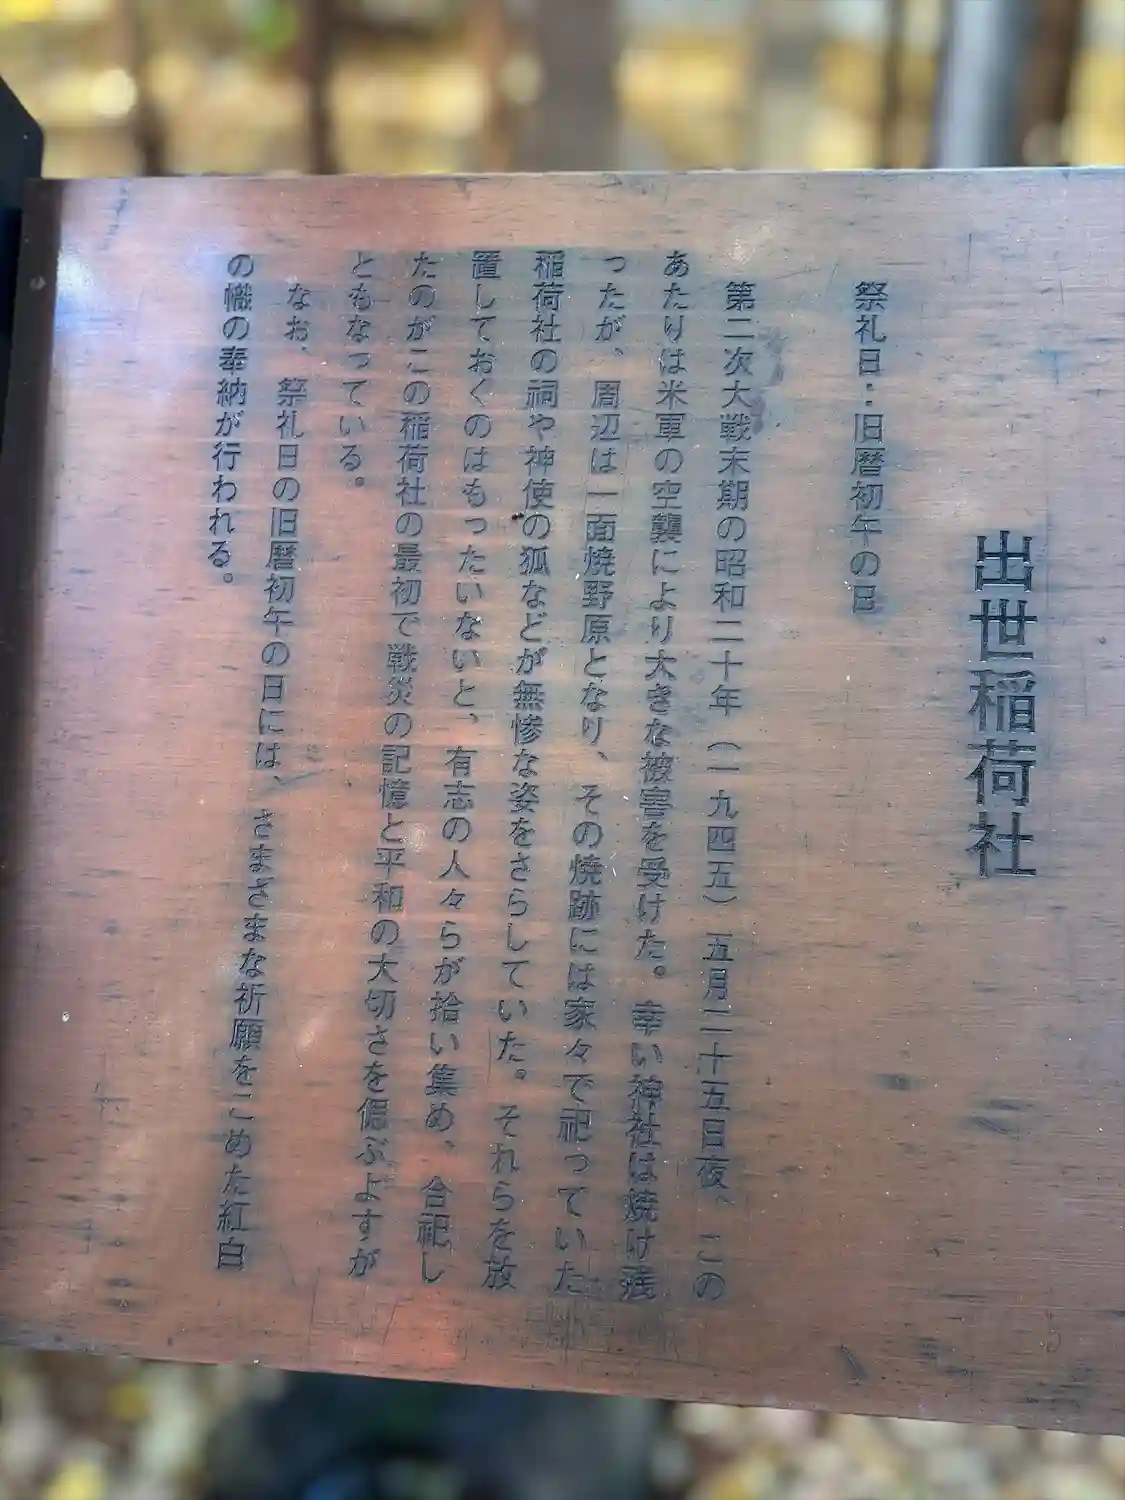 出世稲荷社
祭礼日：旧暦初午の日
第二次大戦末期の昭和二十年（一九四五）五月二十五日夜、この
あたりは米軍の空襲により大きな被害を受けた。幸い神社は焼け残
ったが、周辺は一面焼野原となり、その焼跡には家々で祀っていた
稲荷社の祠や神使の狐などが無惨な姿をさらしていた。それらを放
置しておくのはもったいないと、有志の人々らが拾い集め、合祀し
たのがこの稲荷社の最初で戦災の記憶と平和の大切さを偲ぶよすが
ともなっている。
なお、祭礼日の旧暦初午の日には、さまざまな祈願をこめた紅白
の幟の奉納が行われる。